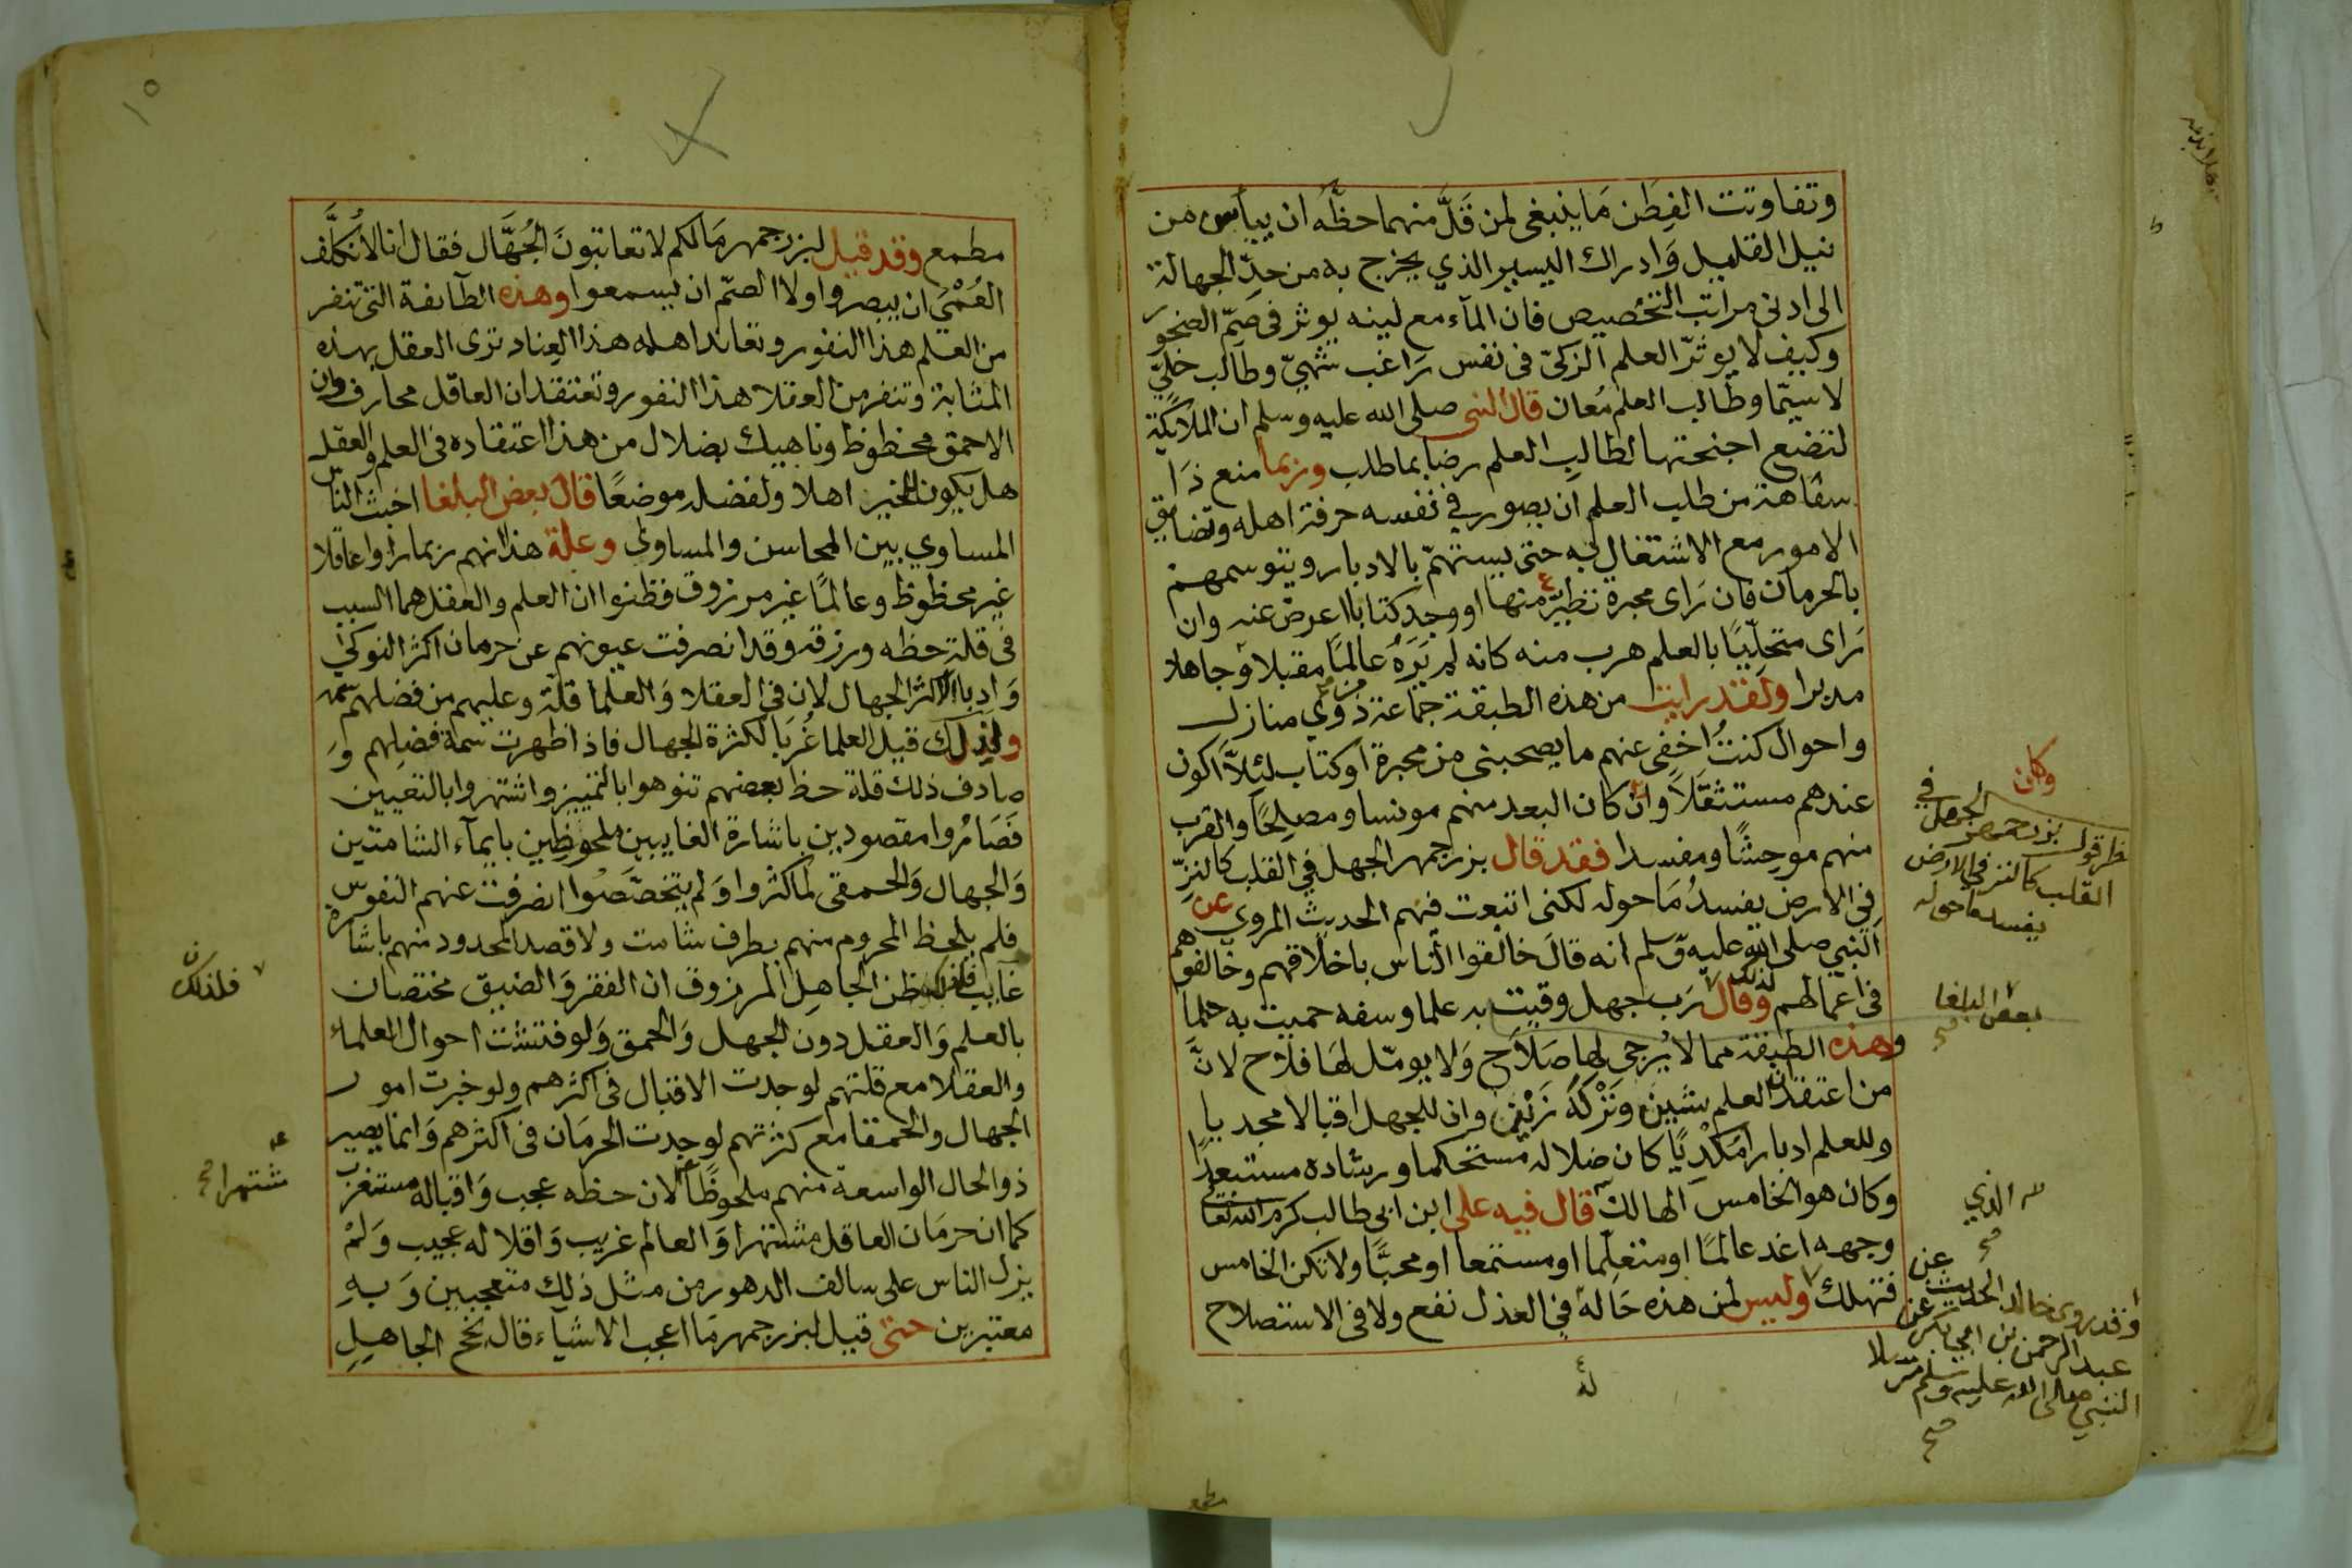 وتفاوتت الفِطَن مَا ينبغى لمن قَلَّ منهما حظّه ان ييأس من
نيل القليل وَادراك اليسير الذي يخرج به من حدّ الجهالة
الى ادنى مراتب التخصيص فان المآء مع لينه يوثر فى صمّ الصخور
وكيف لا يوثرّ العلم الزكىّ فى نفس رَاغب شهىّ وطالب خليّ
لا سيّما وطالب العلم مُعان قال النبى صلى الله عليه وسلم ان الملائكة
لتضع اجنحتها لطالبِ العلم رضا بما طلب وربما منع ذَا
سفاهة من طلب العلم ان يصور في نفسه حرفة اهله وتضايق
الامور مع الاشتغال به حتى يستهمّ بالادبار ويتوسمهم
بالحرمان فان رَاى محبرة تطيّر منها او وجد كتابا اعرض عنه وان
رَاى متحلّيًا بالعلم هرب منه كانه لم يَرَهُ عالمًا مقبلا وَجاهلا
مدبرا ولقد رايت من هذه الطبقة جماعة ذوي منازل
واحوال كنتُ اخفى عنهم ما يصحبنى من محبرة اوكتاب لئِلاَّ اكون
عندهم مستثقَلاً وان كان البعد منهم مونسا ومصلِحًا والقرب
منهم موحِشًا ومفسدا فقد قال بزرجمهر الجهل في القلب كالنزّ
في الارض يفسدُ مَا حوله لكنى اتبعت فيهم الحديث المروي عن
النبي صلى الله عليه وَسلم انه قالَ خالقوا الناس باخلاقهم وخالفوهم
فى اعمالهم وقال رَب جهل وقيت به علما وسفه حميت به حلمًا
وهذه الطبقة مما لا يُرجى لها صَلاَح وَلا يومّل لهَا فلاح لانَّ
من اعتقد ان العلم شين وَتَرْكَهُ زَيْن وان للجهل اقبالا مجديا
وللعلم ادبارا مُكدِيًا كان ضلاله مستحكما ورشاده مستبعدًا
وكان هو الخامس الهالك قال فيه على ابن ابى طالب كرم الله تعالى
وجهه اغد عالمًا او متعلّما او مستمعا او محبًّا ولا تكن الخامس
فتهلك وليس لمن هذه حَاله في العذل نفع ولا فى الاستصلاح
وكان
نظر قول بزرجمهر الجهل في
القلب كالنز في الارض
يفسد ما حوله
بعض البلغا
صح
الذي
صح
وقد روى خالد الحديث عن
عبد الرحمن بن ابي بكر عن
النبي صلى الله عليه وسلم مرسلا
صح
مطمع
١٥
مطمع وقد قيل لبزرجمهر مَا لكم لا تعاتبونَ الجُهَّال فقال انا لا نُكلَّف
العُمْيَ ان يبصروا ولا الصمّ ان يسمعوا وهذه الطآيفة التى تنفر
من العلم هذا النفور وتعاند اهله هذا العِناد ترى العقل بهذه
المثابة وتنفر من العقلا هذا النفور وتعتقد ان العاقل محارف وان
الاحمق محظوظ وناهيك بضلال من هذا اعتقاده فى العلم والعقل
هل يكون للخير اهلا ولفضله موضعًا قال بعض البلغا اخبث الناس
المساوي بين المحاسن والمساوئ وعلة هذا انهم ربما راوا عاقلا
غير محظوظ وعالمًا غير مرزوق فظنوا ان العلم والعقل هما السبب
فى قلة حظه ورزقه وقد انصرفت عيونهم عن حرمان اكثر النوكى
وَادبار اكثر الجهال لان في العقلا وَالعلما قلة وعليهم من فضلهم سمة
ولذلك قيل العلما غُرَبَا لكثرة الجهال فاذا ظهرت سمة فضلِهم وَ
صادف ذلك قلة حظ بعضهم تنوهوا بالتمييز واشتهروا بالتعيين
فَصَارُوا مقصودين باشارة الغايبين ملحوظِين بايمآء الشامتين
وَالجهال وَالحمقى لما كثروا وَلم يتخصَّصُوا انصرفت عنهم النفوس
فلم يلحظ المحروم منهم بطرف شامت ولا قصد المحدود منهم باشارة
غايب فلذلك ظن الجاهل المرزوق ان الفقر وَالضيق مختصان
بالعلم وَالعقل دون الجهل وَالحمق وَلو فتشت احوال العلماء
والعقلا مع قلتهم لوجدت الاقبال فى اكثرهم ولو خبرت امور
الجهال والحمقا مع كثرتهم لوجدت الحرمَان فى اكثرهم وَانما يصير
ذو الحال الواسعة منهم ملحوظًا لان حظه عجب وَاقباله مستغرب
كما ان حرمَان العاقل مشتهرا وَالعالم غريب وَاقلاله عجيب وَلمْ
يزل الناس على سالف الدهور من مثل ذلِك متعجبين وَبهِ
معتبرين حتى قيل لبزرجمهر مَا اعجب الاشيآء قال نجح الجاهلِ
فلذلك ن
مشتهرا صح